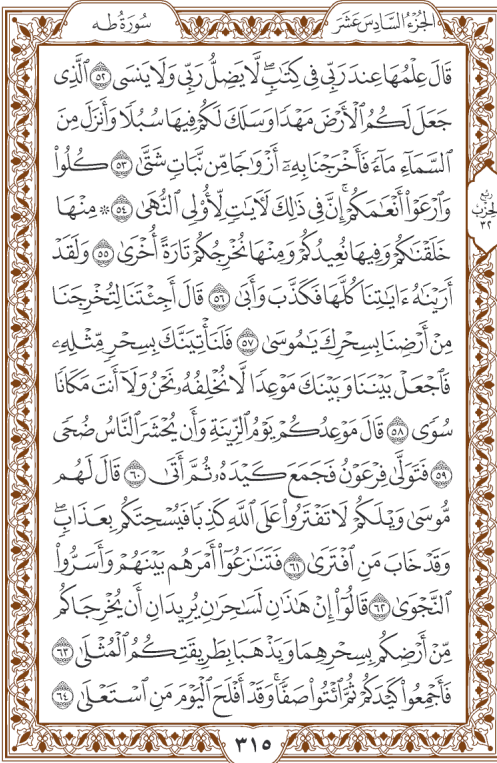 سُورَةُ طه
الجُزْءُ السَّادِسَ عَشَرَ
قَالَ عِلْمُهَا عِندَ رَبِّي فِي كِتَٰبٖۖ لَّا يَضِلُّ رَبِّي وَلَا يَنسَى ٥٢ ٱلَّذِي
جَعَلَ لَكُمُ ٱلۡأَرۡضَ مَهۡدٗا وَسَلَكَ لَكُمۡ فِيهَا سُبُلٗا وَأَنزَلَ مِنَ
ٱلسَّمَآءِ مَآءٗ فَأَخۡرَجۡنَا بِهِۦٓ أَزۡوَٰجٗا مِّن نَّبَاتٖ شَتَّىٰ ٥٣ كُلُواْ
وَٱرۡعَوۡاْ أَنۡعَٰمَكُمۡۚ إِنَّ فِي ذَٰلِكَ لَأٓيَٰتٖ لِّأُوْلِي ٱلنُّهَىٰ ٥٤ ۞ مِنۡهَا
خَلَقۡنَٰكُمۡ وَفِيهَا نُعِيدُكُمۡ وَمِنۡهَا نُخۡرِجُكُمۡ تَارَةً أُخۡرَىٰ ٥٥ وَلَقَدۡ
أَرَيۡنَٰهُ ءَايَٰتِنَا كُلَّهَا فَكَذَّبَ وَأَبَىٰ ٥٦ قَالَ أَجِئۡتَنَا لِتُخۡرِجَنَا
مِنۡ أَرۡضِنَا بِسِحۡرِكَ يَٰمُوسَىٰ ٥٧ فَلَنَأۡتِيَنَّكَ بِسِحۡرٖ مِّثۡلِهِۦ
فَٱجۡعَلۡ بَيۡنَنَا وَبَيۡنَكَ مَوۡعِدٗا لَّا نُخۡلِفُهُۥ نَحۡنُ وَلَآ أَنتَ مَكَانٗا
سُوٗى ٥٨ قَالَ مَوۡعِدُكُمۡ يَوۡمُ ٱلزِّينَةِ وَأَن يُحۡشَرَ ٱلنَّاسُ ضُحٗى
٥٩ فَتَوَلَّىٰ فِرۡعَوۡنُ فَجَمَعَ كَيۡدَهُۥ ثُمَّ أَتَىٰ ٦٠ قَالَ لَهُم
مُّوسَىٰ وَيۡلَكُمۡ لَا تَفۡتَرُواْ عَلَى ٱللَّهِ كَذِبٗا فَيُسۡحِتَكُم بِعَذَابٖۖ
وَقَدۡ خَابَ مَنِ ٱفۡتَرَىٰ ٦١ فَتَنَٰزَعُوٓاْ أَمۡرَهُم بَيۡنَهُمۡ وَأَسَرُّواْ
ٱلنَّجۡوَىٰ ٦٢ قَالُوٓاْ إِنۡ هَٰذَٰنِ لَسَٰحِرَٰنِ يُرِيدَانِ أَن يُخۡرِجَاكُم
مِّنۡ أَرۡضِكُم بِسِحۡرِهِمَا وَيَذۡهَبَا بِطَرِيقَتِكُمُ ٱلۡمُثۡلَىٰ ٦٣
فَأَجۡمِعُواْ كَيۡدَكُمۡ ثُمَّ ٱئۡتُواْ صَفّٗاۚ وَقَدۡ أَفۡلَحَ ٱلۡيَوۡمَ مَنِ ٱسۡتَعۡلَىٰ ٦٤
ربع
الحزب
٣٢
٣١٥